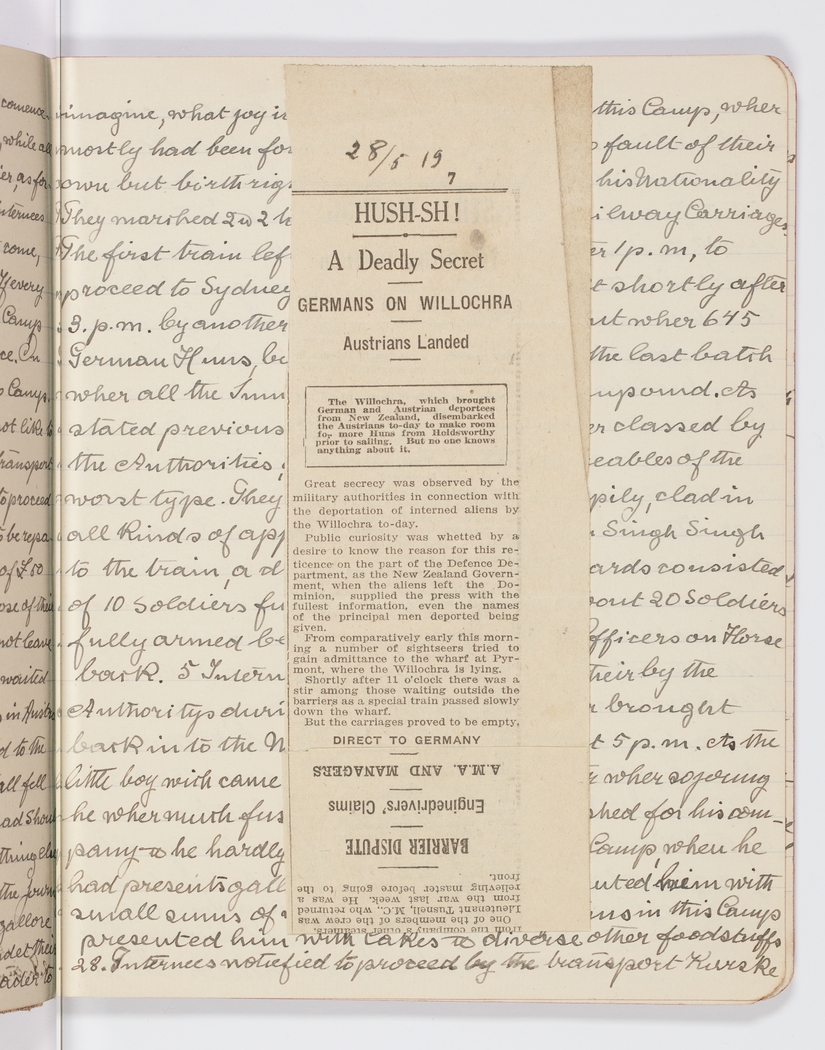 comence
while all
ier, as for
nternees
come,
If every
Camp
ce. En
Camp.
not like to
transport
to proceed
be repa
of £50
ose of their
not leave
waited
in Austra
d to the
all fell
ad shou
thing else
the journ
gallore
ndet their
order to
imagine, what joy in
mostly had been for
own but birth righ
They marched 2 to 2 h
The first train lef
proceed to Sydney
3. p.m. by another
German Huns, be
wher all the Inn
stated previous
the Authorities,
worst type. They
all kinds of app
to the train, a d
of 10 Soldiers fu
fully armed be
back. 5 Intern
Authoritys duri
back in to the M
little boy wich came
he wher much fus
pany to he hardly
had presents gall
small sums of
presented him with Cakes to diverse other foodstuffs
28. Internees notiefied to proceed by the transport Kurske
28/5 19
7
HUSH-SH!
A Deadly Secret
GERMANS ON WILLOCHRA
Austrians Landed
The Willochra, which brought
German and Austrian deportees
from New Zealand, disembarked
the Austrians to-day to make room
for more Huns from Holdsworthy
prior to sailing. But no one knows
anything about it.
Great secrecy was observed by the
military authorities in connection with
the deportation of interned aliens by
the Willochra to-day.
Public curiosity was whetted by a
desire to know the reason for this re-
ticence on the part of the Defence De-
partment, as the New Zealand Govern-
ment, when the aliens left the Do-
minion, supplied the press with the
fullest information, even the names
of the principal men deported being
given.
From comparatively early this morn-
ing a number of sightseers tried to
gain admittance to the wharf at Pyr-
mont, where the Willochra is lying.
Shortly after 11 o'clock there was a
stir among those waiting outside the
barriers as a special train passed slowly
down the wharf.
But the carriages proved to be empty.
DIRECT TO GERMANY
A.M.A. AND MANAGERS
Enginedrivers' Claims
BARRIER DISPUTE
from the company's other steamers.
One of the members of the crew was
Lieutenant Tusnell, M.C., who returned
from the war last week. He was a
relieving master before going to the
front.
this Camp, wher
fault of their
his Nationality
ilway Carriages.
er 1 p.m, to
t shortly after
ut wher 645
the last batch
mpound. As
er classed by
eables of the
pily, clad in
Singh Singh
ards consisted
bout 20 Soldiers
fficers on Horse
their by the
r brought
t 5 p.m. As the
r wher so joung
shed for his com-
Camp, when he
uted him with
ns in this Camp